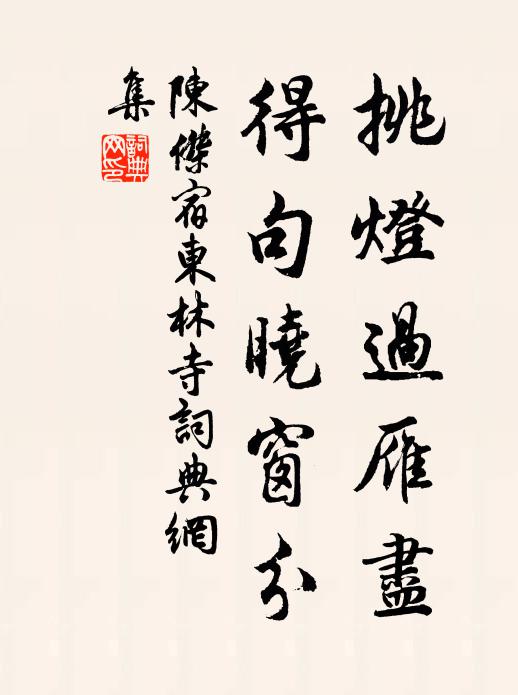 挑燈過雁盡
得句曉窗分
陳傑宿東林寺詞典網
集
詞典網印